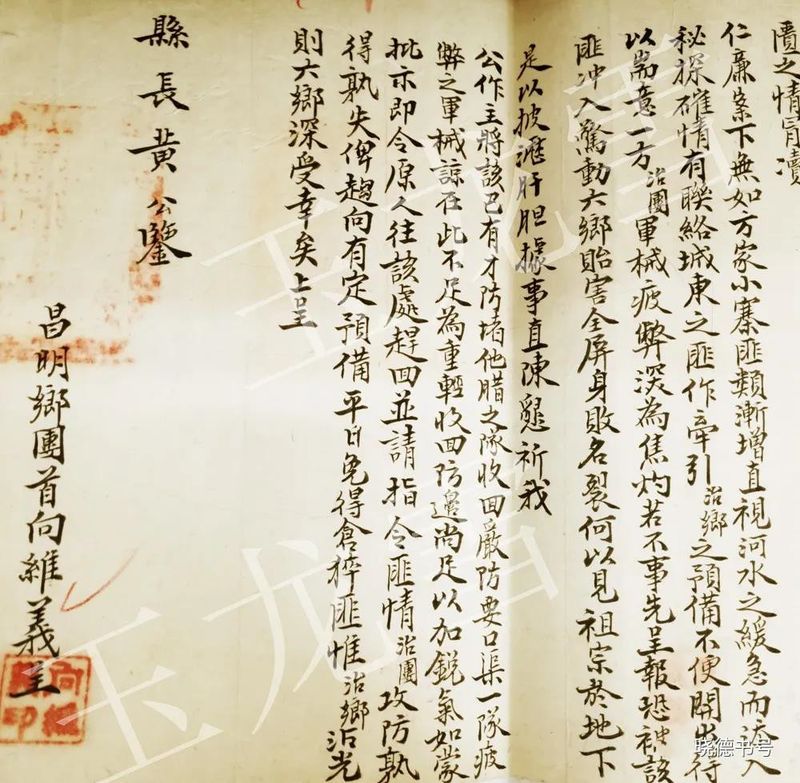 匱之情冒瀆
仁廉案下無如方家小寨匪類漸增直視河水之緩急而添入
秘探確情有聯絡城東之匪作牽引治鄉之預備不便開出行
以耑意一方治團軍械疲弊深為焦灼若不事先呈報恐被該
匪冲入驚動六鄉貽害全屏身敗名裂何以見祖宗於地下
是以披瀝肝胆據事直陳懇祈我
公作主將該已有才防堵他腊之隊收回嚴防要口渠一隊疲
弊之軍械諒在此不足為重輕收回防邊尚足以加銳氣如蒙
批示即令原人往該處趕回並請指令匪情治團攻防孰
得孰失俾趨向有定預備平日免得倉猝匪惟治鄉沾光
則六鄉深受幸矣上呈
縣長黃公鑒
昌明鄉團首向維義呈
向維
印
玉龙雪
玉龙雪
晓德书号